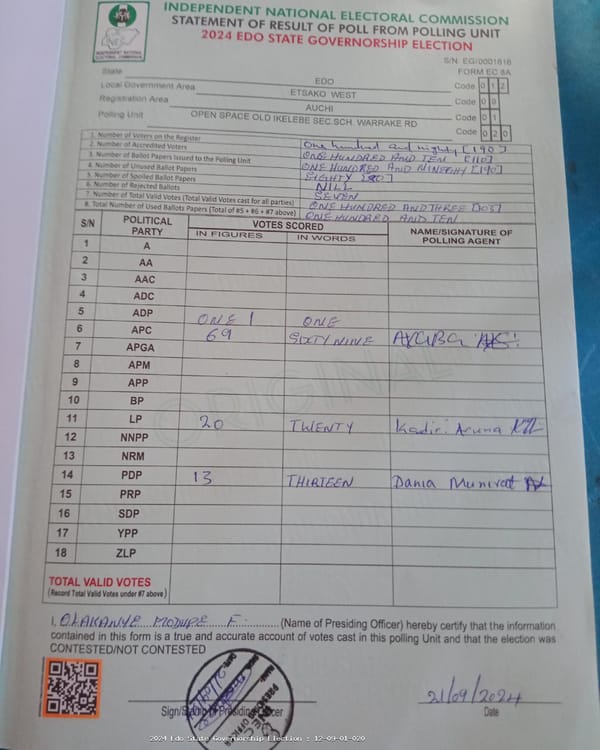 INDEPENDENT NATIONAL ELECTORAL COMMISSION
STATEMENT OF RESULT OF POLL FROM POLLING UNIT
2024 EDO STATE GOVERNORSHIP ELECTION
INDEPENDENT NATIONAL ELECTORAL COMMISSION
S/N EG/0001816
FORM EC 8A
State EDO Code 0 1 2
Local Government Area ETSAKO WEST Code 0 9
Registration Area AUCHI Code 0 1
Polling Unit OPEN SPACE OLD IKELEBE SEC.SCH. WARRAKE RD Code 0 2 0
1. Number of Voters on the Register One hundred and nighty [190]
2. Number of Accredited Voters ONE HUNDRED AND TEN [110]
3. Number of Ballot Papers Issued to the Polling Unit ONE HUNDRED AND NINEGHY [190]
4. Number of Unused Ballot Papers EIGHTY [80]
5. Number of Spoiled Ballot Papers NILL
6. Number of Rejected Ballots SEVEN
7. Number of Total Valid Votes (Total Valid Votes cast for all parties) ONE HUNDRED AND THREE [103]
8. Total Number of Used Ballots Papers (Total of #5 + #6 + #7 above) ONE HUNDRED AND TEN
S/N POLITICAL PARTY VOTES SCORED NAME/SIGNATURE OF POLLING AGENT
IN FIGURES IN WORDS
1 A
2 AA
3 AAC
4 ADC
5 ADP ONE 1 ONE
6 APC 69 SIXTY NINE
7 APGA
8 APM
9 APP
10 BP
11 LP 20 TWENTY Kadiri Aruna
12 NNPP
13 NRM
14 PDP 13 THIRTEEN Dania Munirat
15 PRP
16 SDP
17 YPP
18 ZLP
ORIGINAL
TOTAL VALID VOTES
(Record Total Valid Votes under #7 above)
I, OLAKANYE MODUPE F. (Name of Presiding Officer) hereby certify that the information
contained in this form is a true and accurate account of votes cast in this polling Unit and that the election was
CONTESTED/NOT CONTESTED
21/09/2024
Sign/Stamp of Presiding Officer Date
2024 Edo State Governorship Election : 12-09-01-020